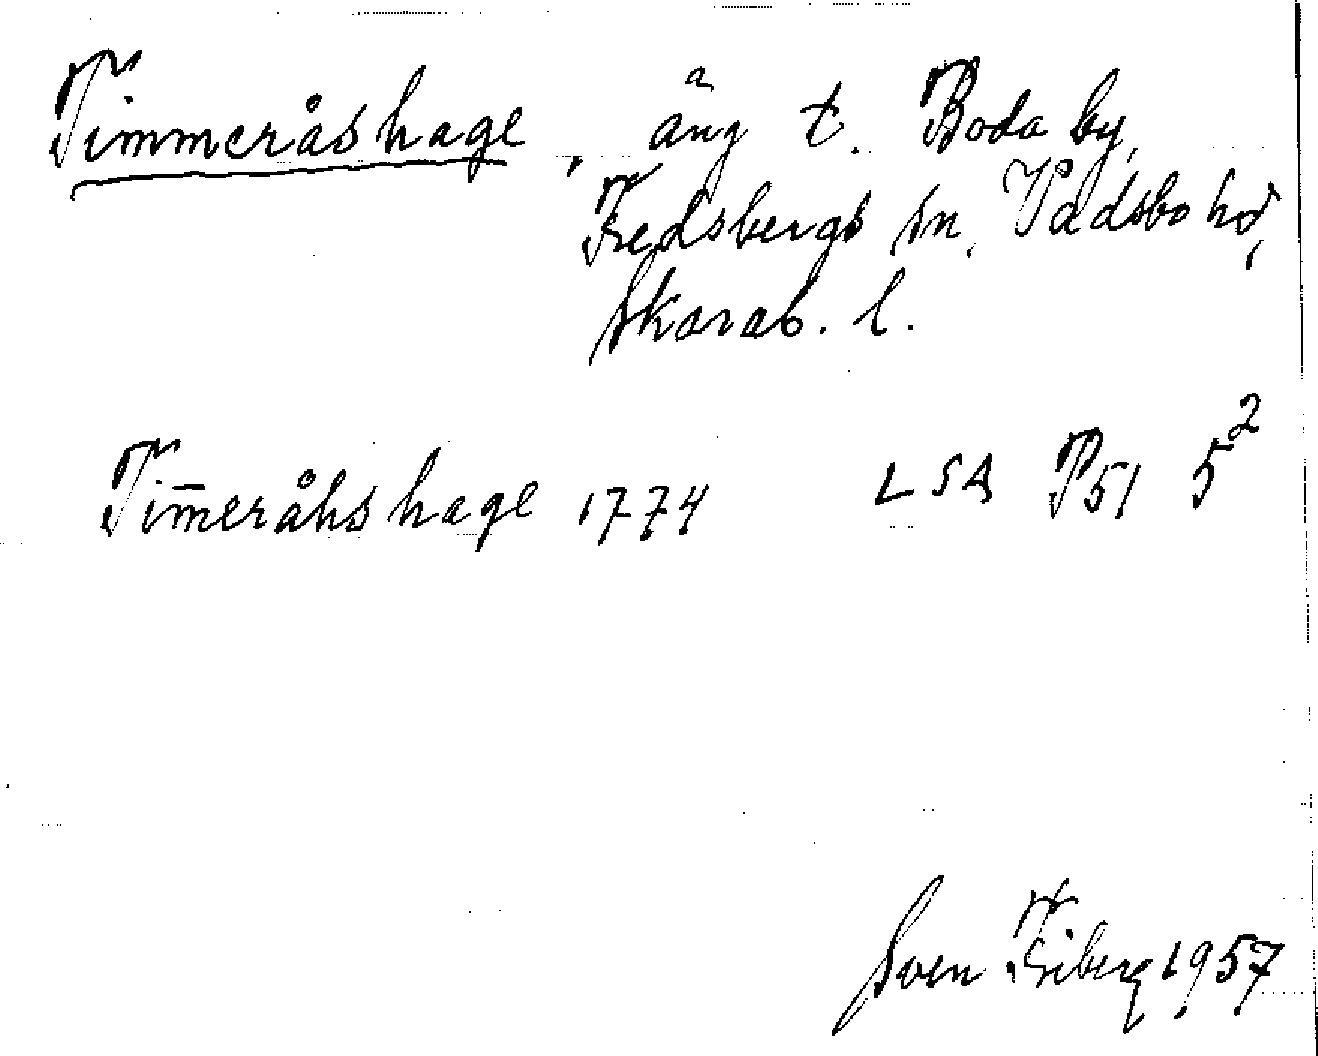 Timmeråshage, äng t. Boda by,
Fredsbergs sn, Vadsbo hd,
Skarab. l.
Tim̅eråhs hage 1774 LSA P51 5²
Sven Friberg 1957